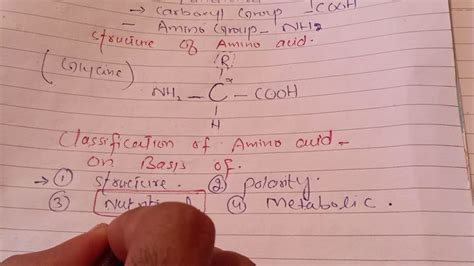 → Carboxyl Group - COOH
- Amino Group - NH2
Structure of Amino acid.
(Glycine)
R
α
NH2 - C - COOH
H
Classification of Amino acid -
on Basis of.
→ ① Structure. ② Polarity.
③ ④ Metabolic.